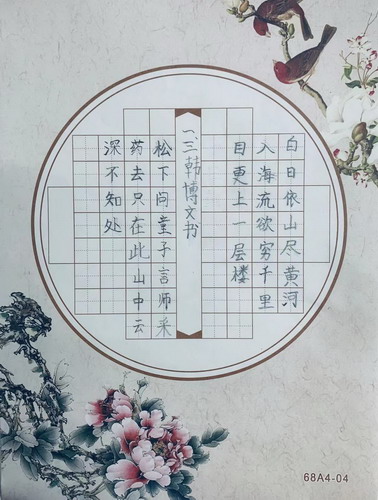 白日依山尽黄河
入海流欲穷千里
目更上一层楼
一、三韩博文书
松下问童子言师采
药去只在此山中云
深不知处
68A4-04